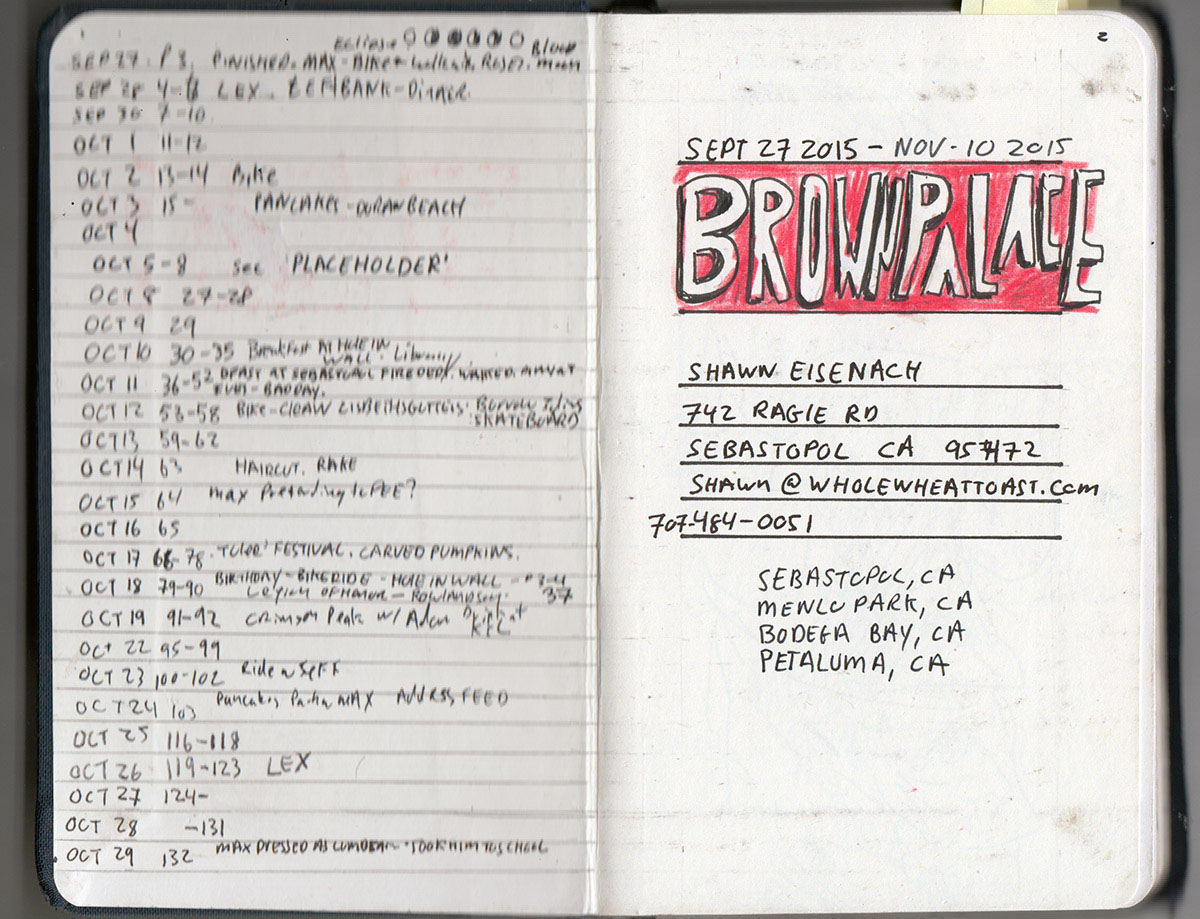 Eclipse Blood
SEP 27 P 3 FINISHED. MAX-BIKE moon
SEP 28 4-6 LEX LEFTBANK-DINNER
SEP 30 7-10
OCT 1 11-12
OCT 2 13-14 Bike
OCT 3 15- PANCAKES-DORAN BEACH
OCT 4
OCT 5-8 see 'PLACEHOLDER'
OCT 8 27-28
OCT 9 29
OCT 10 30-35 Breakfast At HOLE IN
WALL. Library
OCT 11 36-52 AT SEBASTOPOL
BAD DAY.
OCT 12 53-58 BIKE-
SKATEBOARD
OCT 13 59-62
OCT 14 63 HAIRCUT. RAKE
OCT 15 64 MAX Pretending to PEE?
OCT 16 65
OCT 17 66-78 FESTIVAL. CARVED PUMPKINS.
OCT 18 79-90 BIRTHDAY-BIKERIDE-HOLE IN WALL-
Legion OF HONOR-ROWLANDSON. 37
OCT 19 91-92 Crimson Peak w/ Adam
OCT 22 95-99
OCT 23 100-102 Ride
OCT 24 103 Pancakes MAX ADDRSS FEED
OCT 25 116-118
OCT 26 119-123 LEX
OCT 27 124-
OCT 28 -131
OCT 29 132 MAX DRESSED AS TOOK HIM TO SCHOOL
2
SEPT 27 2015 - NOV-10 2015
BROWN PALACE
SHAWN EISENACH
742 RAGLE RD
SEBASTOPOL CA 95472
SHAWN@WHOLEWHEATTOAST.COM
707-484-0051
SEBASTOPOL, CA
MENLO PARK, CA
BODEGA BAY, CA
PETALUMA, CA